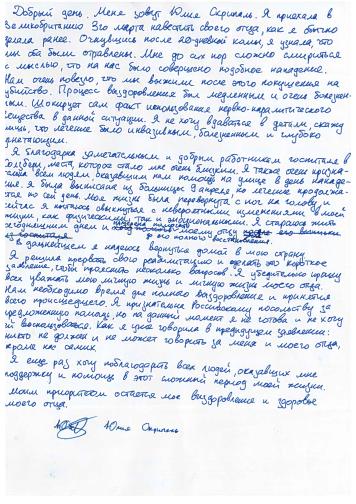 Добрый день. Меня зовут Юлия Скрипаль. Я приехала в
Великобританию 3го марта навестить своего отца, как я обычно
делала ранее. Очнувшись после 20-дневной комы, я узнала, что
мы оба были отравлены. Мне до сих пор сложно смириться
с мыслью, что на нас было совершено подобное нападение.
Нам очень повезло, что мы выжили после этого покушения на
убийство. Процесс выздоровления был медленным и очень болезнен-
ным. Шокирует сам факт использования нервно-паралитического
вещества в данной ситуации. Я не хочу вдаваться в детали, скажу
лишь, что лечение было инвазивным, болезненным и глубоко
угнетающим.
Я благодарна замечательным и добрым работникам госпиталя в
Солсбери, места, которое стало мне очень близким. Я также очень призна-
тельна всем людям, оказавшим нам помощь на улице в день нападе-
ния. Я была выписана из больницы 9 апреля, но лечение продолжа-
ется по сей день. Моя жизнь была перевернута с ног на голову, и
сейчас я пытаюсь свыкнуться с невероятными изменениями в моей
жизни, как физическими, так и эмоциональными. Я стараюсь жить
сегодняшним днем и моему отцу
до его полного восстановления.
В дальнейшем я надеюсь вернуться домой в мою страну
Я решила прервать свою реабилитацию и сделать это короткое
заявление, чтобы прояснить несколько вопросов. Я убедительно прошу
вас уважать мою личную жизнь и личную жизнь моего отца.
Нам необходимо время для полного выздоровления и принятия
всего происшедшего. Я признательна Российскому посольству за
предложенную помощь, но на данный момент я не готова и не хочу
ей воспользоваться. Как я уже говорила в предыдущем заявлении:
никто не должен и не может говорить за меня и моего отца,
кроме нас самих.
Я еще раз хочу поблагодарить всех людей, оказавших мне
поддержку и помощь в этот сложный период моей жизни.
Моим приоритетом остается мое выздоровление и здоровье
моего отца.
Юлия Скрипаль